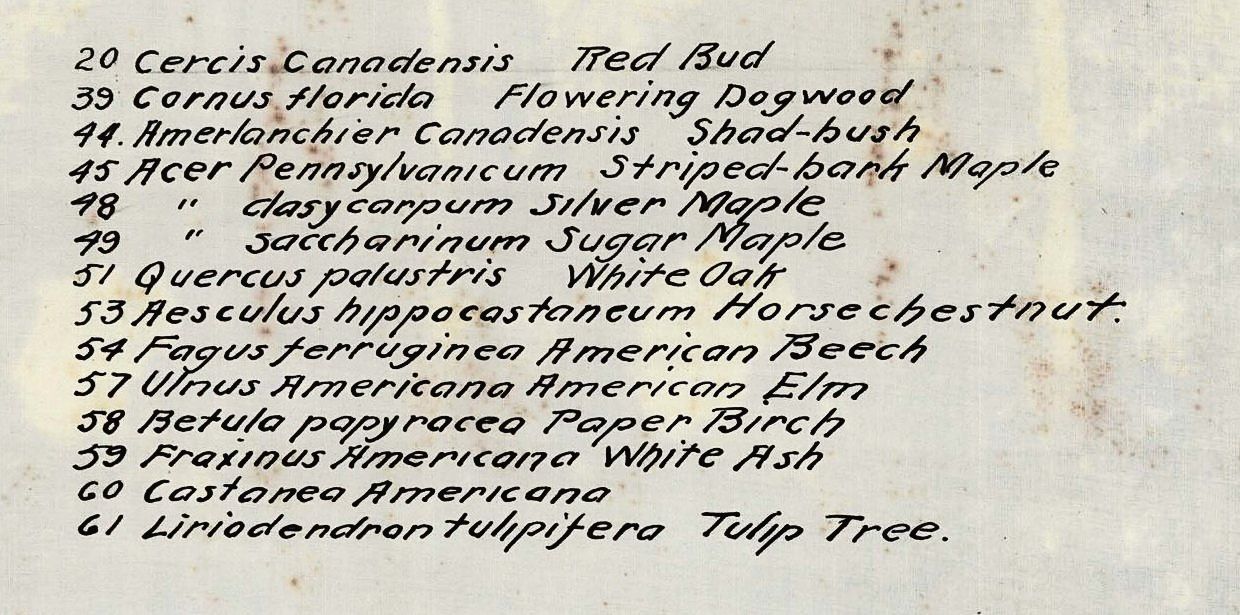 20 Cercis Canadensis Red Bud
39 Cornus florida Flowering Dogwood
44. Amerlanchier Canadensis Shad-bush
45 Acer Pennsylvanicum Striped-bark Maple
48 " dasycarpum Silver Maple
49 " saccharinum Sugar Maple
51 Quercus palustris White Oak
53 Aesculus hippocastaneum Horsechestnut.
54 Fagus ferruginea American Beech
57 Ulnus Americana American Elm
58 Betula papyracea Paper Birch
59 Fraxinus Americana White Ash
60 Castanea Americana
61 Liriodendron tulipifera Tulip Tree.